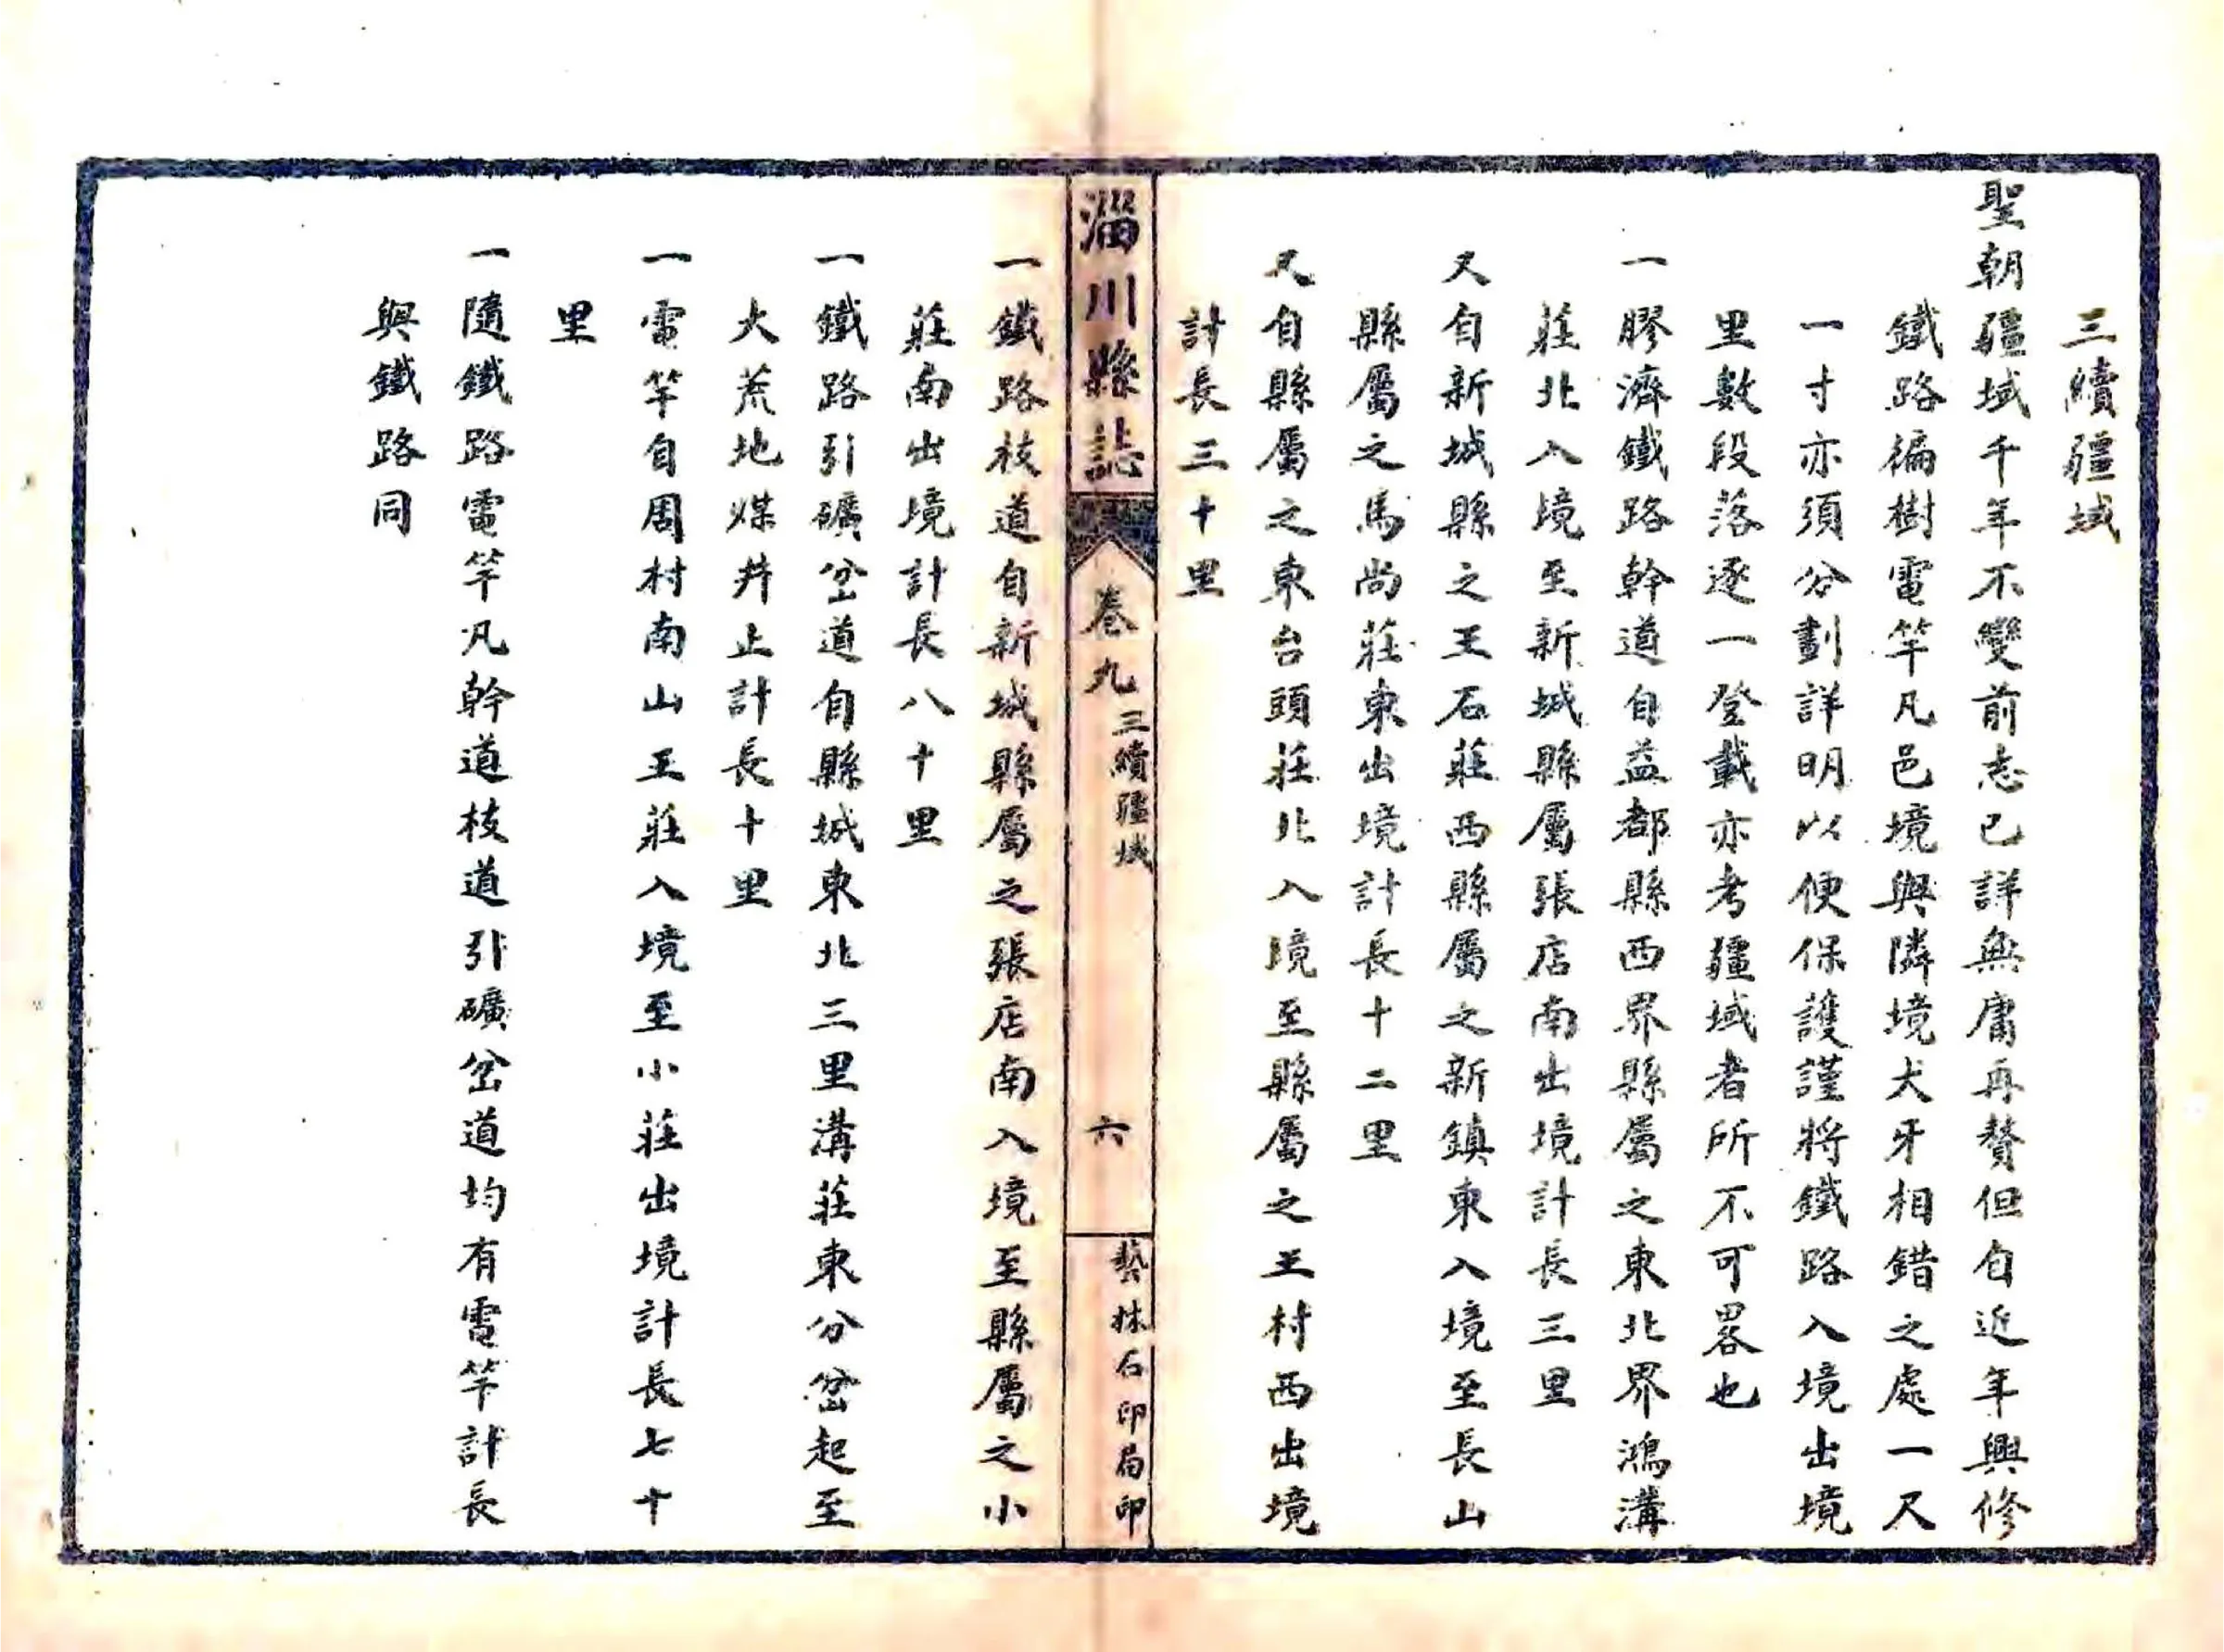 三續疆域
聖朝疆域千年不變前志已詳無庸再贅但自近年興修
鐵路徧樹電竿凡邑境與隣境犬牙相錯之處一尺
一寸亦須分劃詳明以便保護謹將鐵路入境出境
里數段落逐一登載亦考疆域者所不可畧也
一膠濟鐵路幹道自益都縣西界縣屬之東北界鴻溝
莊北入境至新城縣屬張店南出境計長三里
又自新城縣之王石莊西縣屬之新鎮東入境至長山
縣屬之馬尚莊東出境計長十二里
又自縣屬之東台頭莊北入境至縣屬之王村西出境
計長三十里
淄川縣誌
卷九
三續疆域
六
藝林石印局印
一鐵路枝道自新城縣屬之張店南入境至縣屬之小
莊南出境計長八十里
一鐵路引礦岔道自縣城東北三里溝莊東分岔起至
大荒地煤井止計長十里
一電竿自周村南山王莊入境至小莊出境計長七十
里
一隨鐵路電竿凡幹道枝道引礦岔道均有電竿計長
與鐵路同